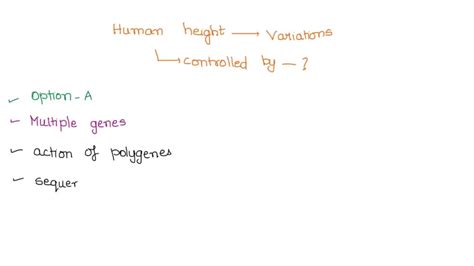 Human height → Variations
↳ controlled by — ?
✓ Option - A
✓ Multiple genes
✓ action of polygenes
✓ sequer